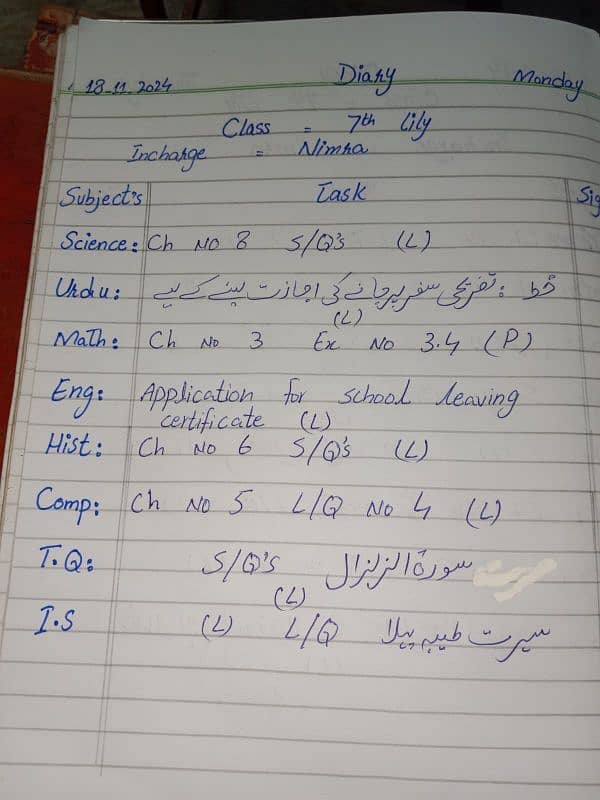 18.11.2024 Diary Monday
Class = 7th Lily
Incharge = Nimra
Subject's Task Sig
Science: Ch No 8 S/Q's (L)
Urdu: خط : تفریحی سفر پر جانے کی اجازت لینے کے لیے
(L)
Math: Ch No 3 Ex No 3.4 (P)
Eng: Application for school leaving
certificate (L)
Hist: Ch No 6 S/Q's (L)
Comp: Ch No 5 L/Q No 4 (L)
T.Q: S/Q's سورۃ الزلزال
(L)
I.S (L) L/Q سیرت طیبہ پہلا